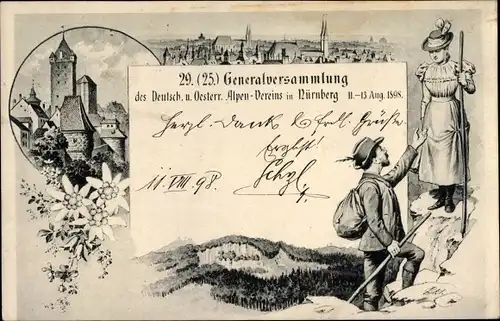 29. (25.) Generalversammlung
des Deutsch. u. Oesterr. Alpen-Vereins in Nürnberg 11.-13 Aug. 1898.
Herzl. Dank & frdl. Grüsse
11. VIII. 98.